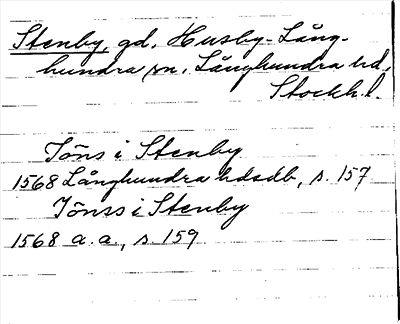 Stenby, gd. Husby-Lång-
hundra sn. Långhundra hd,
Stockh.l.
Jöns i Stenby
1568 Långhundra hdsdb, s. 157
Jönss i Stenby
1568 a.a., s. 159